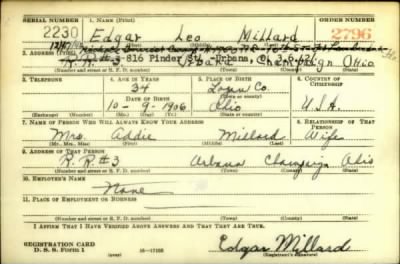 SERIAL NUMBER 1. NAME (Print) ORDER NUMBER
2230 Edgar Leo Millard 2796
(First) (Middle) (Last)
2. ADDRESS (Print)
R. R. #3 816 Pinder St. Urbana, Champaign Ohio
(Number and street or R. F. D. number) (Town) (County) (State)
3. TELEPHONE 4. AGE IN YEARS 5. PLACE OF BIRTH 6. COUNTRY OF CITIZENSHIP
34 Logan Co.
DATE OF BIRTH (Town or county)
10-9-1906 Ohio U.S.A.
(Exchange) (Number) (Mo.) (Day) (Yr.) (State or country)
7. NAME OF PERSON WHO WILL ALWAYS KNOW YOUR ADDRESS 8. RELATIONSHIP OF THAT PERSON
Mrs. Addie Millard Wife
(Mr., Mrs., Miss) (First) (Middle) (Last)
9. ADDRESS OF THAT PERSON
R.R.#3 Urbana Champaign Ohio
(Number and street or R. F. D. number) (Town) (County) (State)
10. EMPLOYER'S NAME
None
11. PLACE OF EMPLOYMENT OR BUSINESS
(Number and street or R. F. D. number) (Town) (County) (State)
I AFFIRM THAT I HAVE VERIFIED ABOVE ANSWERS AND THAT THEY ARE TRUE.
REGISTRATION CARD
D. S. S. Form 1 (over) 16-17105 Edgar Millard
(Registrant's signature)